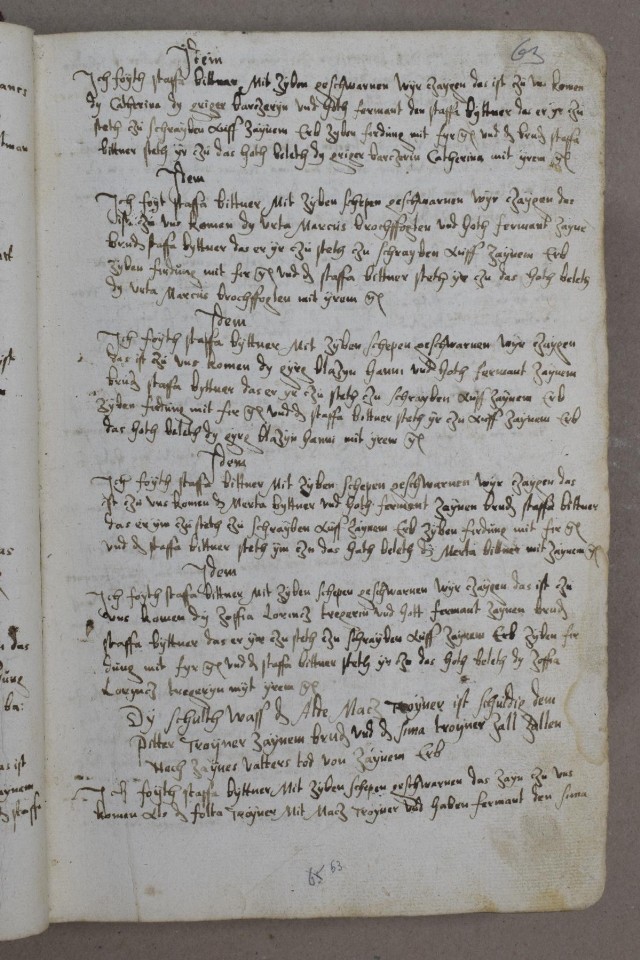 63
Item
Ich foyth staffa bittner Mit zyben geschwarnen wyr zaygen das ist zu vns komen
dy Catherina dy greger barczeryn vnd hoth fermant den staffa byttner das er yr zu
steth zu schrayben Auff zaynem Erb zyben firdung mit fyr gl vnd d bruder staffa
bittner steth yr zu das hoth beleth dy greger barczerin Catherina mit yrem gl
Item
Ich foyt staffa bittner Mit zyben schepen geschwarnen wyr zaygen das
ist zu vns komen dy vrta Marcus brochffogten vnd hoth fermant zayne
bruder staffa byttner das er yr zu steth zu schrayben Auff zaynem Erb
zyben firdung mit fir gl vnd d staffa bittner steth yr zu das hoth beleth
dy vrta Marcus brochffogten mit yrem gl
Idem
Ich foyth staffa byttner Mit zyben schepen geschwarnen wyr zaygen
das ist zu vns komen dy gyrg blazyn hanni vnd hoth fermant zaynem
bruder staffa byttner das er yr zu steth zu schrayben Auff zaynem Erb
zyben firdung mit fir gl vnd d staffa bittner steth yr zu Auff zaynem Erb
das hoth beleth dy gyrg blazyn hanni mit yrem gl
Idem
Ich foyth staffa bittner Mit zyben schepen geschwarnen wyr zaygen das
ist zu vns komen d Merta byttner vnd hoth fermant zaynen bruder staffa bittner
das er ym zu steth zu schrayben Auff zaynem Erb zyben firdung mit fir gl
vnd d staffa bittner steth ym zu das hoth beleth d Merta bittner mit zaynem gl
Idem
Ich foyth staffa bittner Mit zyben schepen geschwarnen wyr zaygen das ist zu
vns komen dy zoffia Lorencz tregerin vnd hatt fermant zaynen bruder
staffa byttner das er yr zu steth zu schrayben Auff zaynem Erb zyben fir
dung mit fyr gl vnd d staffa bittner steth yr zu das hoth beleth dy zoffia
Lorencz tregeryn myt yrem gl
Dy schulth wass d Alde Macz Troyner ist schuldig dem
Pitter Troyner zaynem bruder vnd d sima troyner zall zallen
Nach zaynes vatters tod von zaynem Erb
Ich foyth staffa byttner Mit zyben schepen geschwarnen das zayn zu vns
komen Als d folta Troyner Mit Macz Troyner vnd haben fermant den sima
65 63